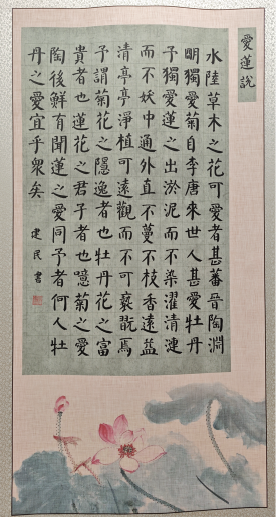 愛蓮說
水陸草木之花可愛者甚蕃晉陶淵
明獨愛菊自李唐來世人甚愛牡丹
予獨愛蓮之出淤泥而不染濯清漣
而不妖中通外直不蔓不枝香遠益
清亭亭淨植可遠觀而不可褻翫焉
予謂菊花之隱逸者也牡丹花之富
貴者也蓮花之君子者也噫菊之愛
陶後鮮有聞蓮之愛同予者何人牡
丹之愛宜乎衆矣
建民書